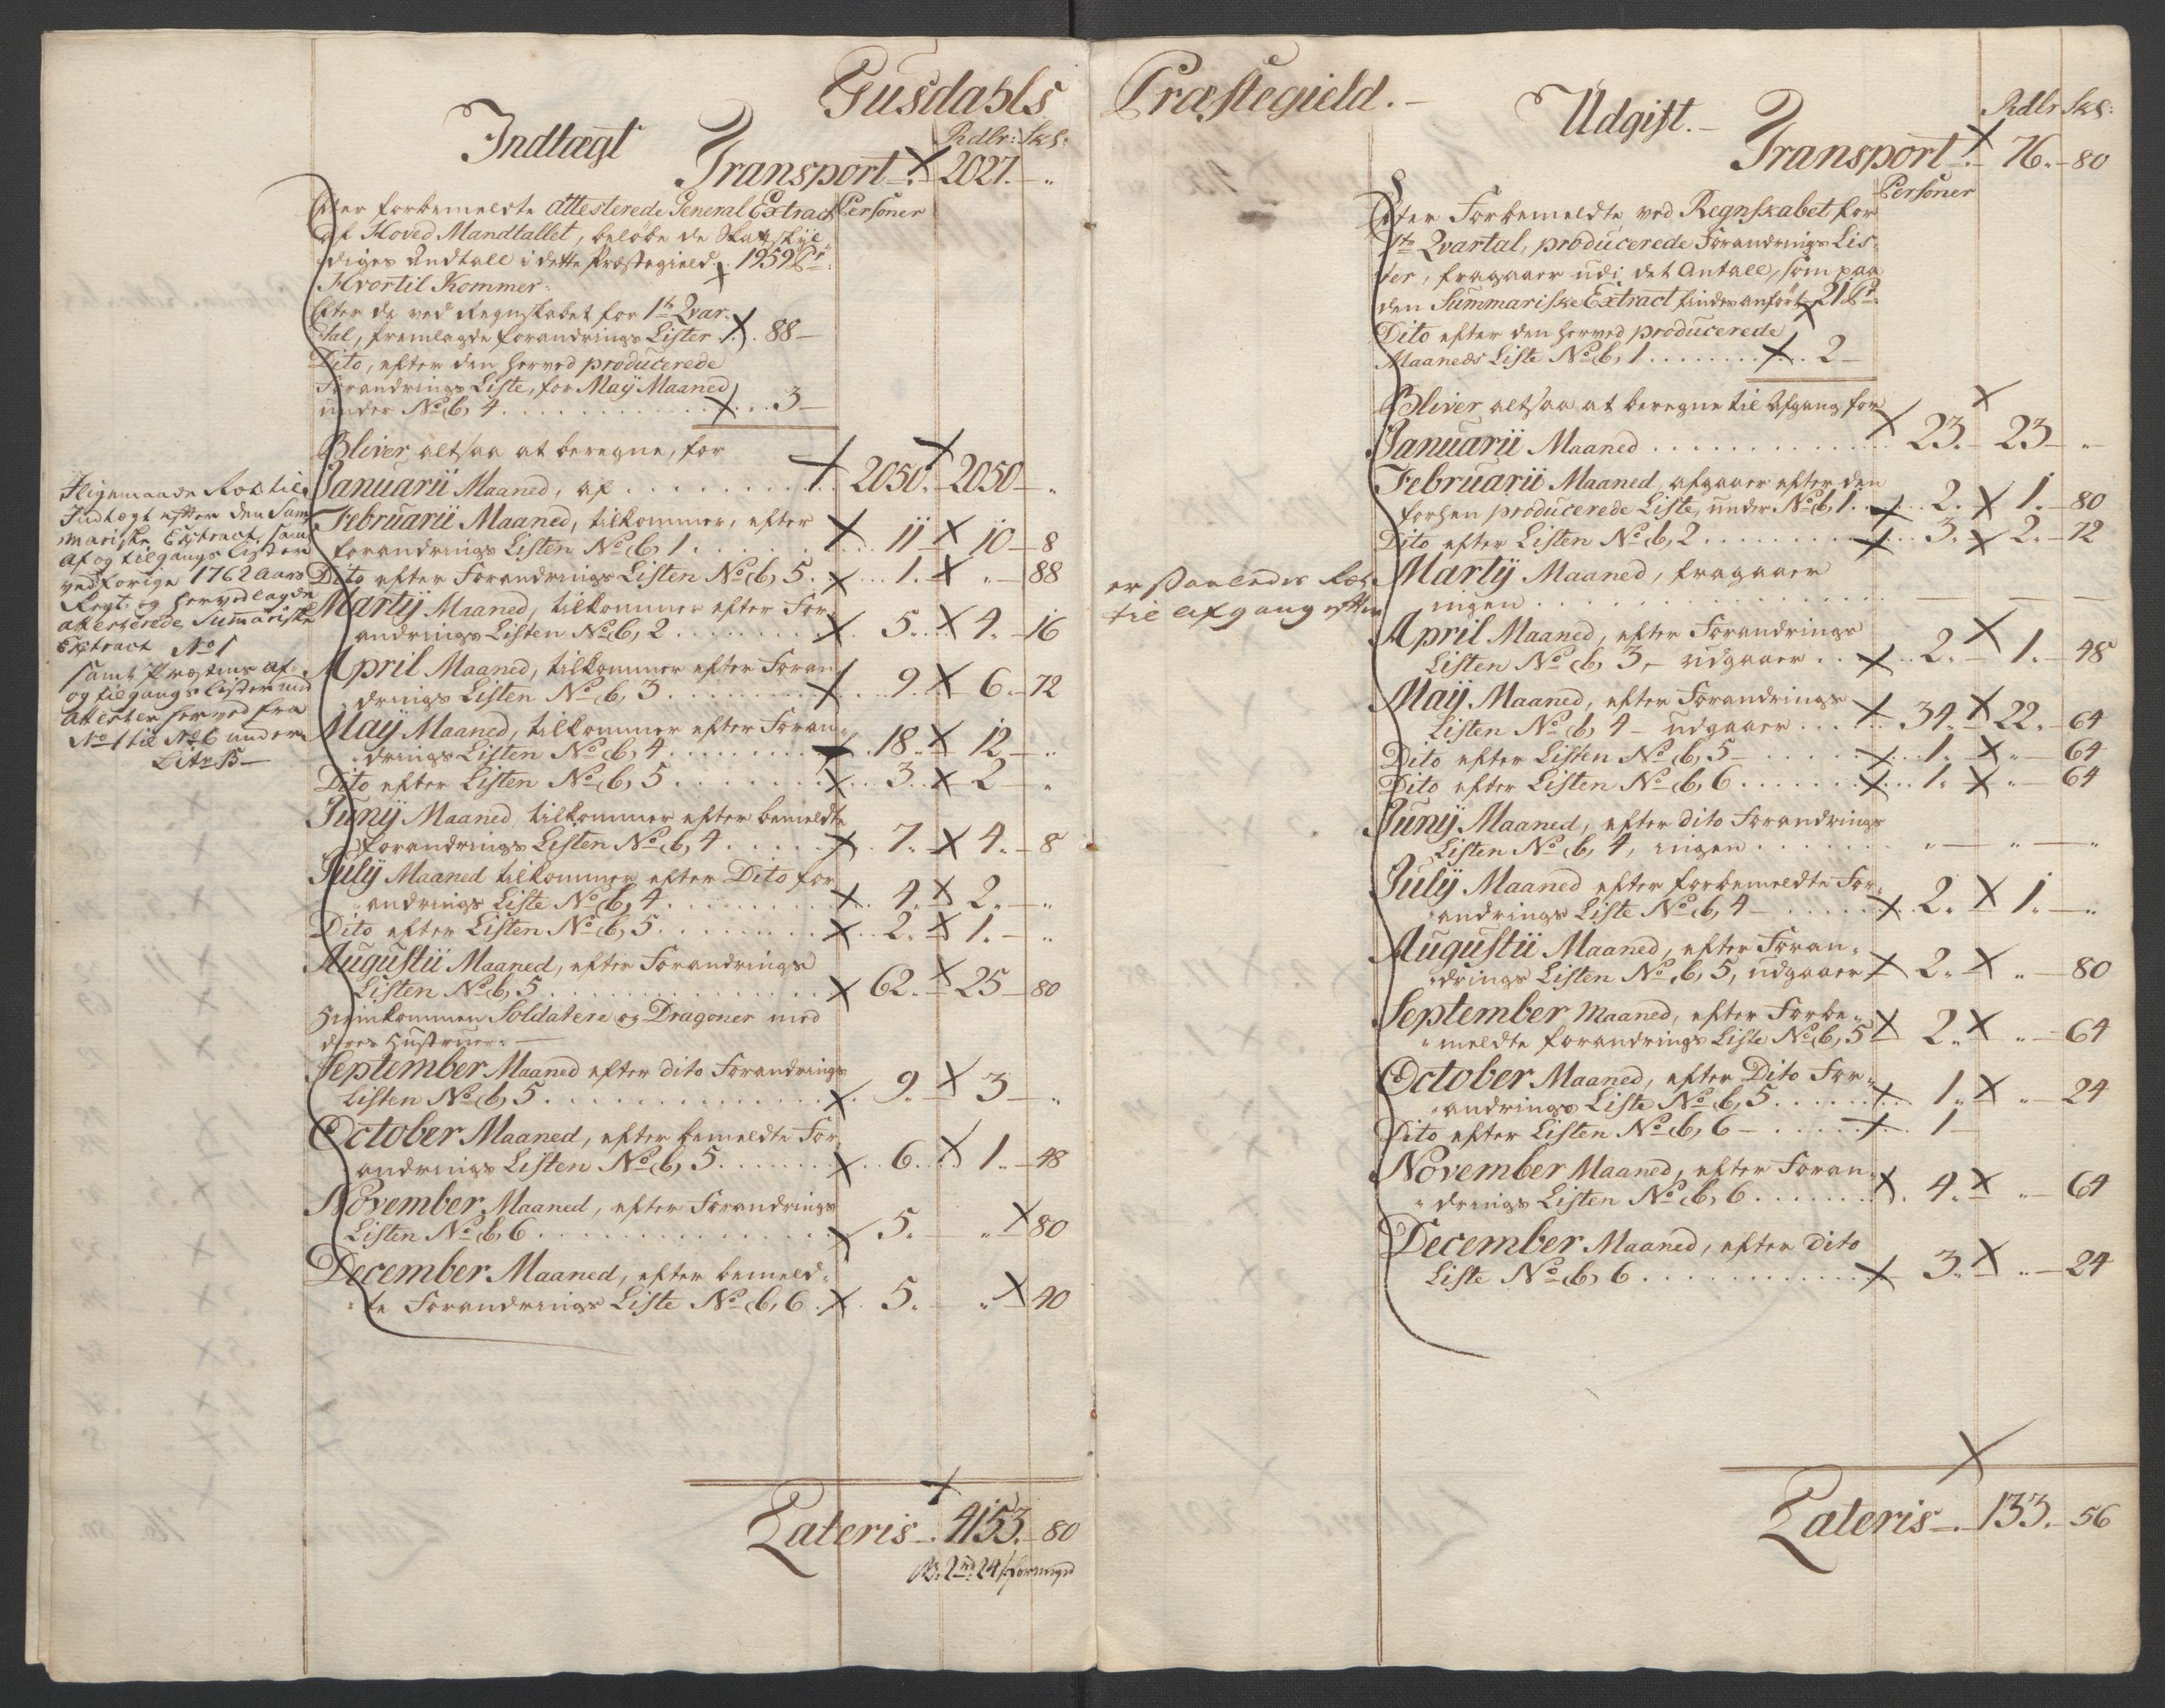 Gusdahls
Indtægt
Rdlr: Sk:
Transport . 2027. — "
Personer
Efter forbemeldte Attesterede General Extract
af Hoved Mandtallet, beløbe de Skatskyl-
diges Andtall i dette Præstegield . 1959 Pr:
Hvortil Kommer:
Efter de ved Regnskabet for 1te Qvar-
tal, fremlagde forandrings Lister . 88 —
Dito, efter den herved producerede
Forandrings Liste, for Maij Maaned
under No b, 4 . . . 3 —
Bliver altsaa at beregne, for
Januarii Maaned, af . . . 2050. — 2050 — "
Februarii Maaned, tilkommer, efter
forandrings Listen No b, 1 . . . 11 — 10 — 8
Dito efter Forandrings Listen No b, 5 . . . 1. — " — 88
Martij Maaned, tilkommer efter For-
andrings Listen No b, 2 . . . 5. — 4. — 16
April Maaned, tilkommer efter Foran-
drings Listen No b, 3 . . . 9. — 6. — 72
Maij Maaned, tilkommer efter Foran-
drings Listen No b, 4 . . . 18. — 12 — "
Dito efter Listen No b, 5 . . . 3. — 2 — "
Junij Maaned tilkommer efter bemeldte
forandrings Listen No b, 4 . . . 7. — 4. — 8
Julij Maaned tilkommer efter Dito for-
andrings Liste No b, 4 . . . 4. — 2. — "
Dito efter Listen No b, 5 . . . 2. — 1. — "
Augustii Maaned, efter Forandrings
Listen No b, 5 . . . 62. — 25 — 80
Hiemkommen Soldatere og Dragoner med
deres Hustruer. —
September Maaned efter dito Forandrings
Listen No b, 5 . . . 9. — 3 — "
October Maaned, efter bemeldte For-
andrings Listen No b, 5 . . . 6. — 1. — 48
November Maaned, efter Forandrings
Listen No b, 6 . . . 5. — " — 80
December Maaned, efter bemeld-
te Forandrings Liste No b, 6 . . . 5. — " — 40
Lateris . 4153. — 80
2 rd 24
Iligemaade til
Indtægt efter den Sum-
mariske Extract, samt
af og tilgangs Lister
ved forige 1762 Aars
Regt. og hervedlagde
attesterede Summariske
Extract No 1
samt Præstens af-
og tilgangs Lister med
Attester herved fra
No 1 til No 6 under
Litr B —
Præstegield. —
Udgift. —
Rdlr Sk:
Transport . — 76. — 80
Personer
Efter Forbemeldte ved Regnskabet for
1te Qvartal, producerede Forandrings Lis-
ter, fragaaer udi det Antall, som paa
den Summariske Extract findes anført 21 Pr.
Dito efter den herved producerede
Maaneds Liste No b, 1 . . . 2 —
Bliver altsaa at beregne til Afgang for
Januarii Maaned . . . 23. — 23 — "
Februarii Maaned, afgaaer efter den
forhen producerede Liste, under No b, 1 . . . 2. — 1. — 80
Dito efter Listen No b, 2 . . . 3. — 2. — 72
Martij Maaned, fragaaer
ingen . . . — — —
April Maaned, efter Forandrings
Listen No b, 3, — udgaaer . . . 2. — 1. — 48
Maij Maaned, efter Forandrings
Listen No b, 4 — udgaaer . . . 34. — 22. — 64
Dito efter Listen No b, 5 — . . . 1. — " — 64
Dito efter Listen No b, 6 . . . 1. — " — 64
Junij Maaned, efter dito Forandrings
Listen No b, 4, ingen . . . " — " — "
Julij Maaned efter forbemeldte For-
andrings Liste No b, 4 — . . . 2. — 1. — "
Augustii Maaned, efter Foran-
drings Listen No b, 5, udgaaer 2. — " — 80
September Maaned, efter Forbe-
meldte forandrings Liste No b, 5 2. — " — 64
October Maaned, efter Dito For-
andrings Liste No b, 5 . . . 1. — " — 24
Dito efter Listen No b, 6 — . . . 1 —
November Maaned, efter Foran-
drings Listen No b, 6 . . . 4. — " — 64
December Maaned, efter dito
Liste No b, 6 . . . 3. — " — 24
Lateris — . 133. — 56
er saaledes
til Afgang efter